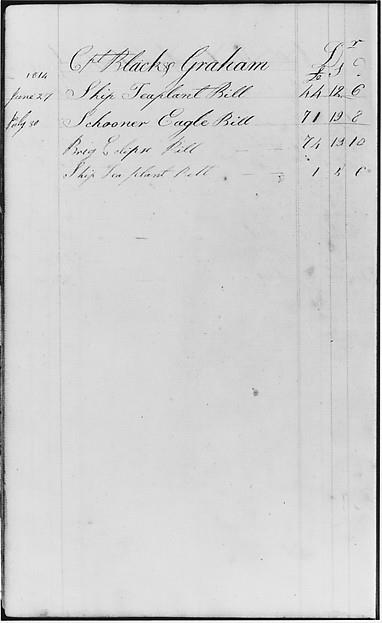 Cpt Black & Graham Dr
1814 £ S
June 27 Ship Teaplant Bill 44 12 6
July 30 Schooner Eagle Bill 71 19 8
Brig Eclipse Bill 74 13 10
Ship Tea plant Bill 1